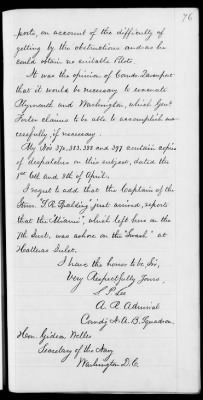 76
ports, on account of the difficulty of
getting by the obstructions and as he
could obtain no suitable Pilots.
It was the opinion of Comdr. Davenport
that it would be necessary to evacuate
Plymouth and Washington, which Genl.
Foster claims to be able to accomplish suc-
cessfully, if necessary.
My Nos 374, 383, 388 and 397 contain copies
of despatches on this subject, dated the
1st 6th and 8th of April.
I regret to add that the Captain of the
Strmr. "S.R. Spalding" just arrived, reports
that the "Miami", which left here on the
7th Inst. was ashore on the "Swash" at
Hatteras Inlet.
I have the honor to be, Sir,
Very Respectfully Yours,
S. P. Lee
A. R. Admiral
Comdg N. A. B. Squadron.
Hon. Gideon Welles
Secretary of the Navy
Washington D.C.